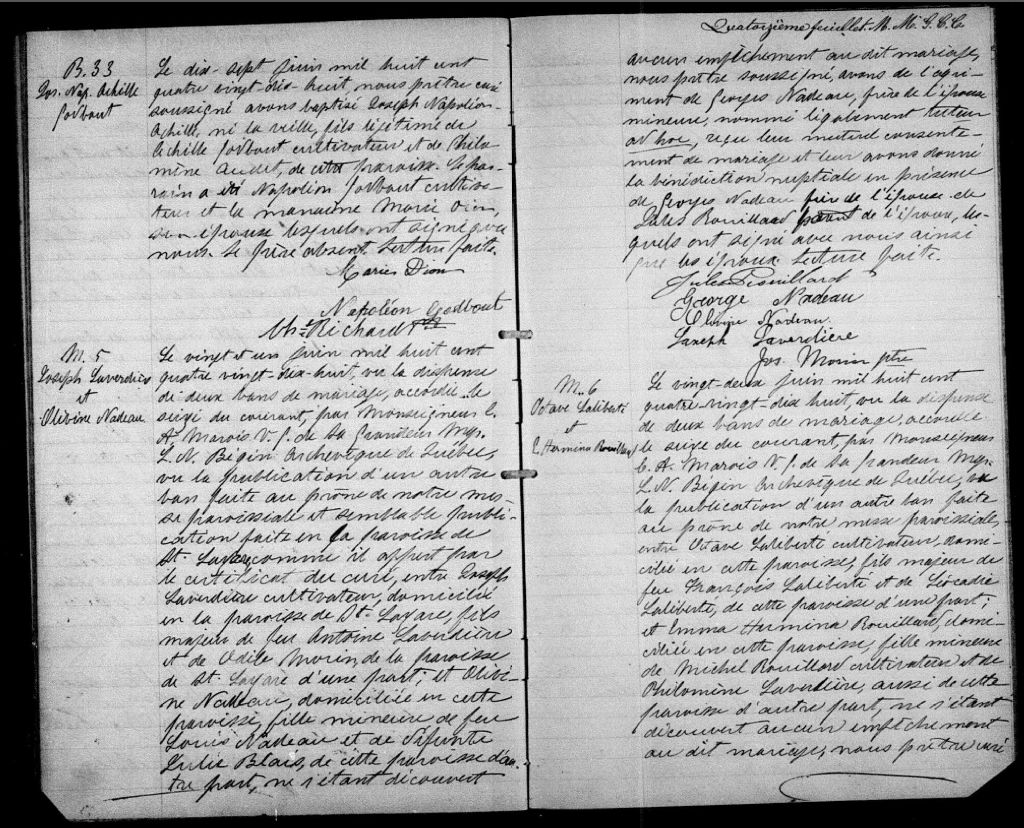 B. 33
Jos. Nap. Achille
Godbout
Le dix-sept juin mil huit cent
quatre vingt-dix-huit, nous prêtre curé
soussigné avons baptisé Joseph Napoléon-
Achille, né la veille, fils légitime de
Achille Godbout cultivateur et de Philo-
mène Audet, de cette paroisse. Le par-
rain a été Napoléon Godbout cultiva-
teur et la marraine Marie Dion,
son épouse lesquels ont signé avec
nous. Le père absent. Lecture faite.
Marie Dion
Napoléon Godbout
Richard ptre
M. 5
Joseph Laverdière
et
Olivine Nadeau
Le vingt et un juin mil huit cent
quatre vingt-dix-huit, vu la dispense
de deux bans de mariage, accordée le
seize du courant, par Monseigneur C.
A. Marois V. G. de Sa Grandeur Mgr.
L. N. Bégin Archevêque de Québec,
vu la publication d'un autre
ban faite au prône de notre mes-
se paroissiale et semblable publi-
cation faite en la paroisse de
St. Lazare, comme il appert par
le certificat du curé, entre Joseph
Laverdière cultivateur, domicilié
en la paroisse de St. Lazare, fils
majeur de feu Antoine Laverdière
et de Odile Morin, de la paroisse
de St. Lazare d'une part; et Olivi-
ne Nadeau, domiciliée en cette
paroisse, fille mineure de feu
Louis Nadeau et de défunte
Julie Blais, de cette paroisse d'au-
tre part, ne s'étant découvert
Quatorzième feuillet. M. M. G. C. C.
aucun empêchement au dit mariage,
nous prêtre soussigné, avons de l'agré-
ment de Georges Nadeau, frère de l'épouse
mineure, nommé légalement tuteur
ad hoc, reçu leur mutuel consente-
ment de mariage et leur avons donné
la bénédiction nuptiale en présence
de Georges Nadeau frère de l'épouse et de
Jules Rouillard parent de l'époux, les-
quels ont signé avec nous ainsi
que les époux. Lecture faite.
Jules Rouillard
George Nadeau
Olivine Nadeau
Joseph Laverdière
Jos. Morin ptre
M. 6
Octave Laliberté
et
E. Hermina Rouillard
Le vingt-deux juin mil huit cent
quatre-vingt-dix huit, vu la dispense
de deux bans de mariage, accordée
le seize du courant, par Monseigneur
C. A. Marois V. G. de Sa Grandeur Mgr.
L. N. Bégin Archevêque de Québec, vu
la publication d'un autre ban faite
au prône de notre messe paroissiale,
entre Octave Laliberté cultivateur, domi-
cilié en cette paroisse, fils majeur de
feu François Laliberté et de Léocadie
Laliberté, de cette paroisse d'une part;
et Emma Hermina Rouillard, domi-
ciliée en cette paroisse, fille mineure
de Michel Rouillard cultivateur et de
Philomène Laverdière, aussi de cette
paroisse d'autre part, ne s'étant
découvert aucun empêchement
au dit mariage, nous prêtre curé